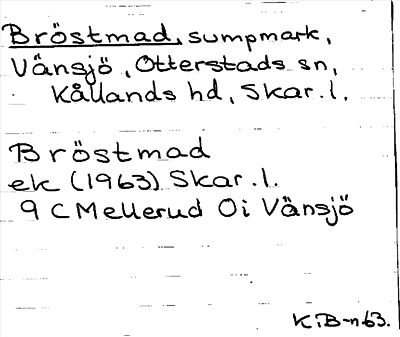 Bröstmad, sumpmark,
Vänsjö, Otterstads sn,
Kållands hd, Skar.l.
Bröstmad
ek (1963) Skar.l.
9 C Mellerud Oi Vänsjö
K.B-n 63.